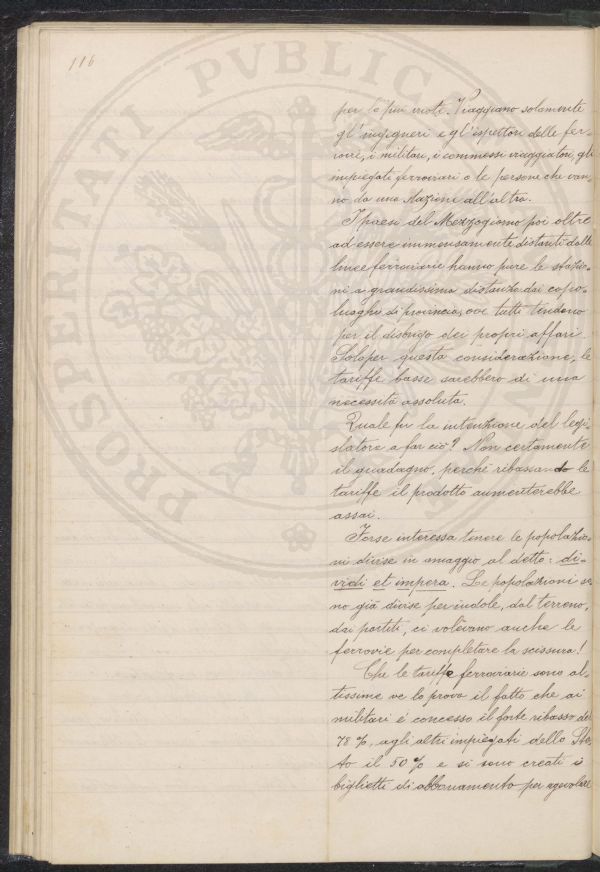 116
per lo più vuoti. Viaggiano solamente
gl'ingegneri e gl'ispettori delle fer-
rovie, i militari, i commessi viaggiatori, gli
impiegati ferroviari e le persone che van-
no da una stazione all'altra.
I paesi del Mezzogiorno poi oltre
ad essere immensamente distanti dalle
linee ferroviarie hanno pure le stazio-
ni a grandissima distanza dai capo-
luoghi di provincia, ove tutti tendono
per il disbrigo dei propri affari.
Solo per questa considerazione, le
tariffe basse sarebbero di una
necessità assoluta.
Quale fu la intenzione del legi-
slatore a far ciò? Non certamente
il guadagno, perché ribassando le
tariffe il prodotto aumenterebbe
assai.
Forse interessa tenere le popolazio-
ni divise in omaggio al detto: di-
vidi et impera. Le popolazioni so-
no già divise per indole, dal terreno,
dai partiti, ci volevano anche le
ferrovie per completare la scissura!
Che le tariffe ferroviarie sono al-
tissime ve lo prova il fatto che ai
militari è concesso il forte ribasso del
78 %, agli altri impiegati dello Sta-
to il 50 % e si sono creati i
biglietti di abbonamento per agevolare
PROSPERITATI PVBLICAE